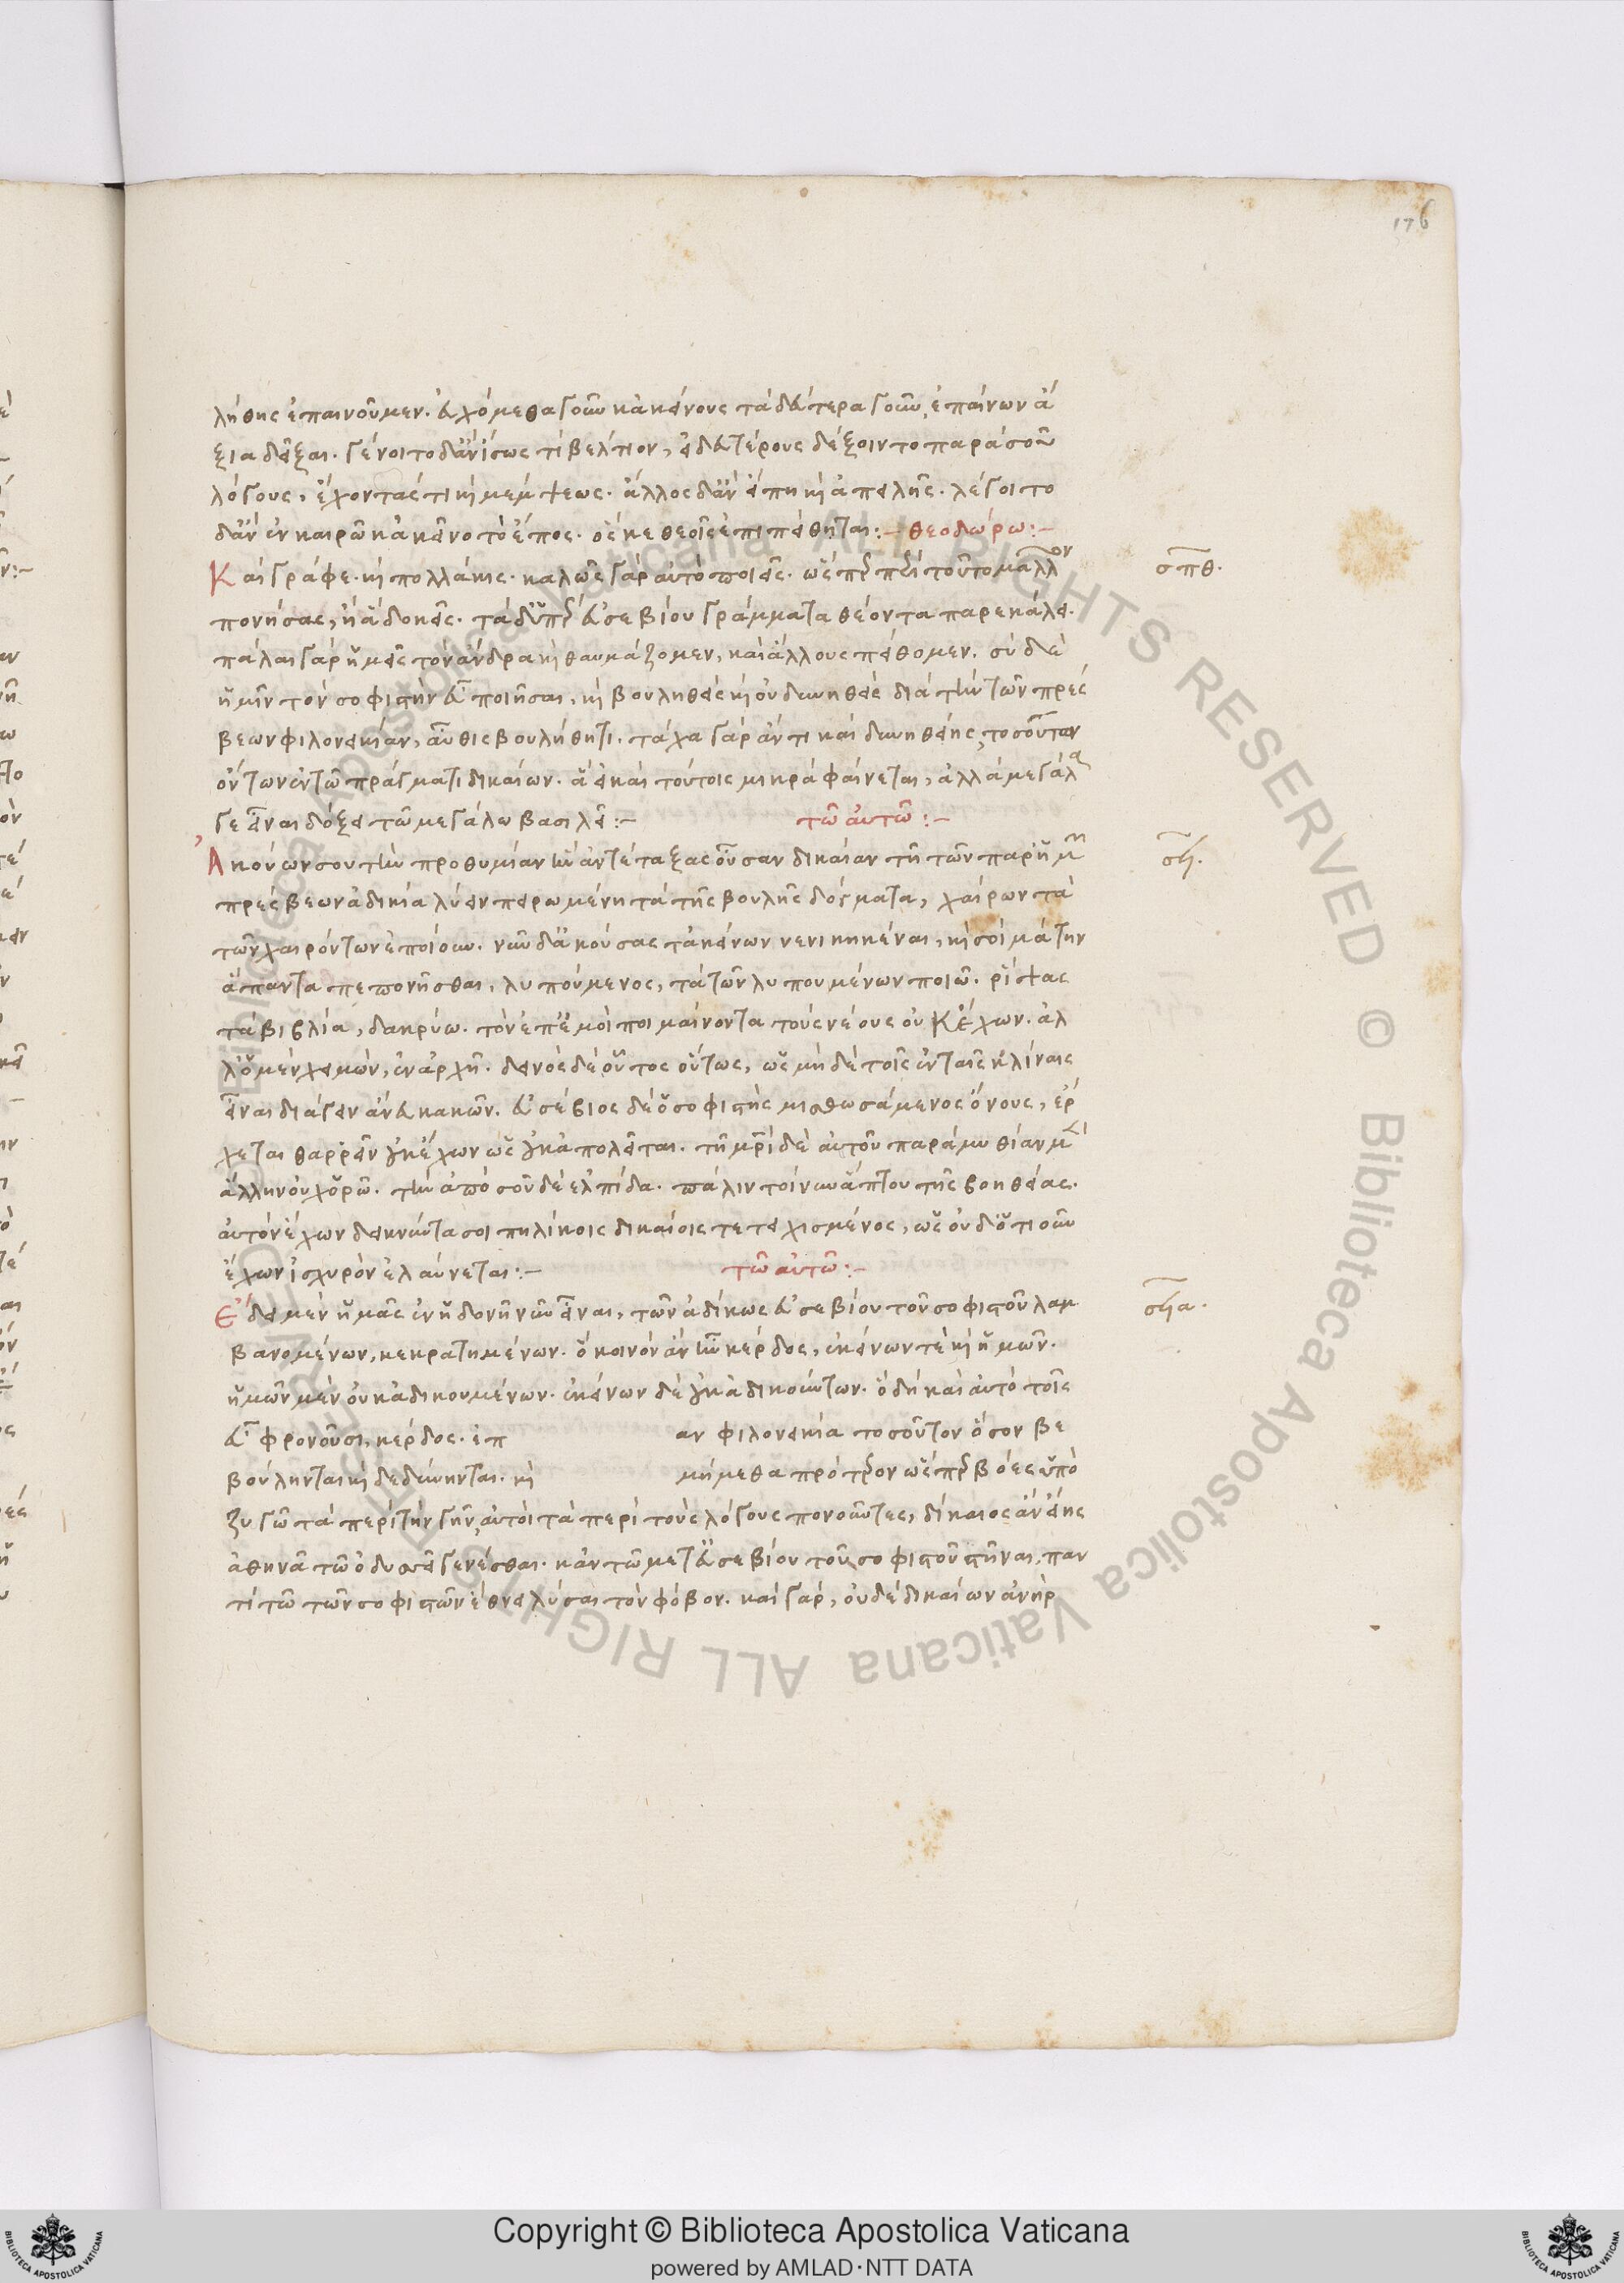 176
λήθης ἐπαινοῦμεν. εὐχόμεθα γοῦν κἀκείνους τὰ δεύτερα γοῦν ἐπαίνων ἄ
ξια δεῖξαι. γένοιτο δ' ἂν ἴσως τι βέλτιον, εἰ δευτέρους δέξοιντο παρὰ σοῦ
λόγους, ἔχοντάς τι καὶ μέμψεως. ἄλλος δ' ἂν εἴπῃ καὶ ἀπειλῆς. λέγοιτο
δ' ἂν ἐν καιρῷ κἀκεῖνο τὸ ἔπος. ὅς κε θεοῖς ἐπιπείθηται:– θεοδώρω:–
Καὶ γράφε. καὶ πολλάκις. καλῶς γὰρ αὐτὸ ποιεῖς. ὥσπερ περὶ τοῦτο μᾶλλον σπθ.
πονήσας, ἢ ἃ δοκεῖς. τὰ δ' ὑπὲρ εὐσεβίου γράμματα θέοντα παρεκάλει.
πάλαι γὰρ ἡμεῖς τὸν ἄνδρα καὶ θαυμάζομεν, καὶ ἄλλους πείθομεν. σὺ δὲ
ἡμῖν τὸν σοφιστὴν εὖ ποιῆσαι, καὶ βουληθεὶς καὶ οὐ δυνηθεὶς διὰ τὴν τῶν πρέσ
βεων φιλονεικίαν, αὖθις βουλήθητι. τάχα γὰρ ἄν τι καὶ δυνηθείης, τοσούτων
ὄντων ἐν τῷ πράγματι δικαίων. ἃ εἰ καὶ τούτοις μικρὰ φαίνεται, ἀλλὰ μεγάλα
γε εἶναι δόξει τῷ μεγάλῳ βασιλεῖ:– τῶ αὐτῶ:–
Ἀκούων σου τὴν προθυμίαν ἣν ἀντέταξας οὖσαν δικαίαν τῇ τῶν παρ' ἡμῖν σϟ.
πρέσβεων ἀδικίᾳ λύειν πειρωμένῃ τὰ τῆς βουλῆς δόγματα, χαίρων τὰ
τῶν χαιρόντων ἐποίουν. νῦν δ' ἀκούσας τἀκείνων νενικηκέναι, καὶ σοὶ μάτην
ἅπαντα πεπονῆσθαι, λυπούμενος, τὰ τῶν λυπουμένων ποιῶ. ῥίψας
τὰ βιβλία, δακρύω. τὸν ἐπ' ἐμοὶ ποιμαίνοντα τοὺς νέους οὐκ ἔχων. ἀλ
λ' ὁ μὲν χειμὼν, ἐν ἀρχῇ. δεινὸς δὲ οὗτος οὕτως, ὡς μηδὲ τοῖς ἐν ταῖς κλίναις
εἶναι διάγειν ἄνευ κακῶν. εὐσέβιος δὲ ὁ σοφιστὴς μισθωσάμενος ὄνους, ἔρ
χεται θαρρεῖν οὐκ ἔχων ὡς οὐκ ἀπολεῖται. τῇ μητρὶ δὲ αὐτοῦ παραμυθίαν μὲν
ἄλλην οὐχ ὁρῶ. τὴν ἀπὸ σοῦ δὲ ἐλπίδα. πάλιν τοίνυν ἅπτου τῆς βοηθείας.
αὐτὸν ἔχων δεικνύντα σοι πηλίκοις δικαίοις τετειχισμένος, ὡς οὐδ' ὁτιοῦν
ἔχων ἰσχυρὸν ἐλαύνεται:– τῶ αὐτῶ:–
Ἔδει μὲν ἡμᾶς ἐν ἡδονῇ νῦν εἶναι, τῶν ἀδίκως εὐσεβίου τοῦ σοφιστοῦ λαμ σϟα.
βανομένων, κεκρατημένων. ὃ κοινὸν ἂν ἦν κέρδος, ἐκείνων τὲ καὶ ἡμῶν.
ἡμῶν μὲν οὐκ ἀδικουμένων. ἐκείνων δὲ οὐκ ἀδικούντων. ὃ δὴ καὶ αὐτὸ τοῖς
εὖ φρονοῦσι, κέρδος. ἐπ αν φιλονεικία τοσοῦτον ὅσον βε
βούληνται καὶ δεδύνηνται. καὶ μήμεθα πρότερον ὥσπερ βόες ὑπὸ
ζυγῷ τὰ περὶ τὴν γῆν, αὐτοὶ τὰ περὶ τοὺς λόγους πονοῦντες, δίκαιος ἂν εἴης
ἀθηνᾶ τῷ ὀδυσσεῖ γενέσθαι. κἀν τῷ μετ' εὐσεβίου τοῦ σοφιστοῦ στῆναι, παν
τὶ τῷ τῶν σοφιστῶν ἔθνει λῦσαι τὸν φόβον. καὶ γὰρ, οὐδὲ δικαίων ἀνὴρ
Copyright © Biblioteca Apostolica Vaticana
powered by AMLAD·NTT DATA